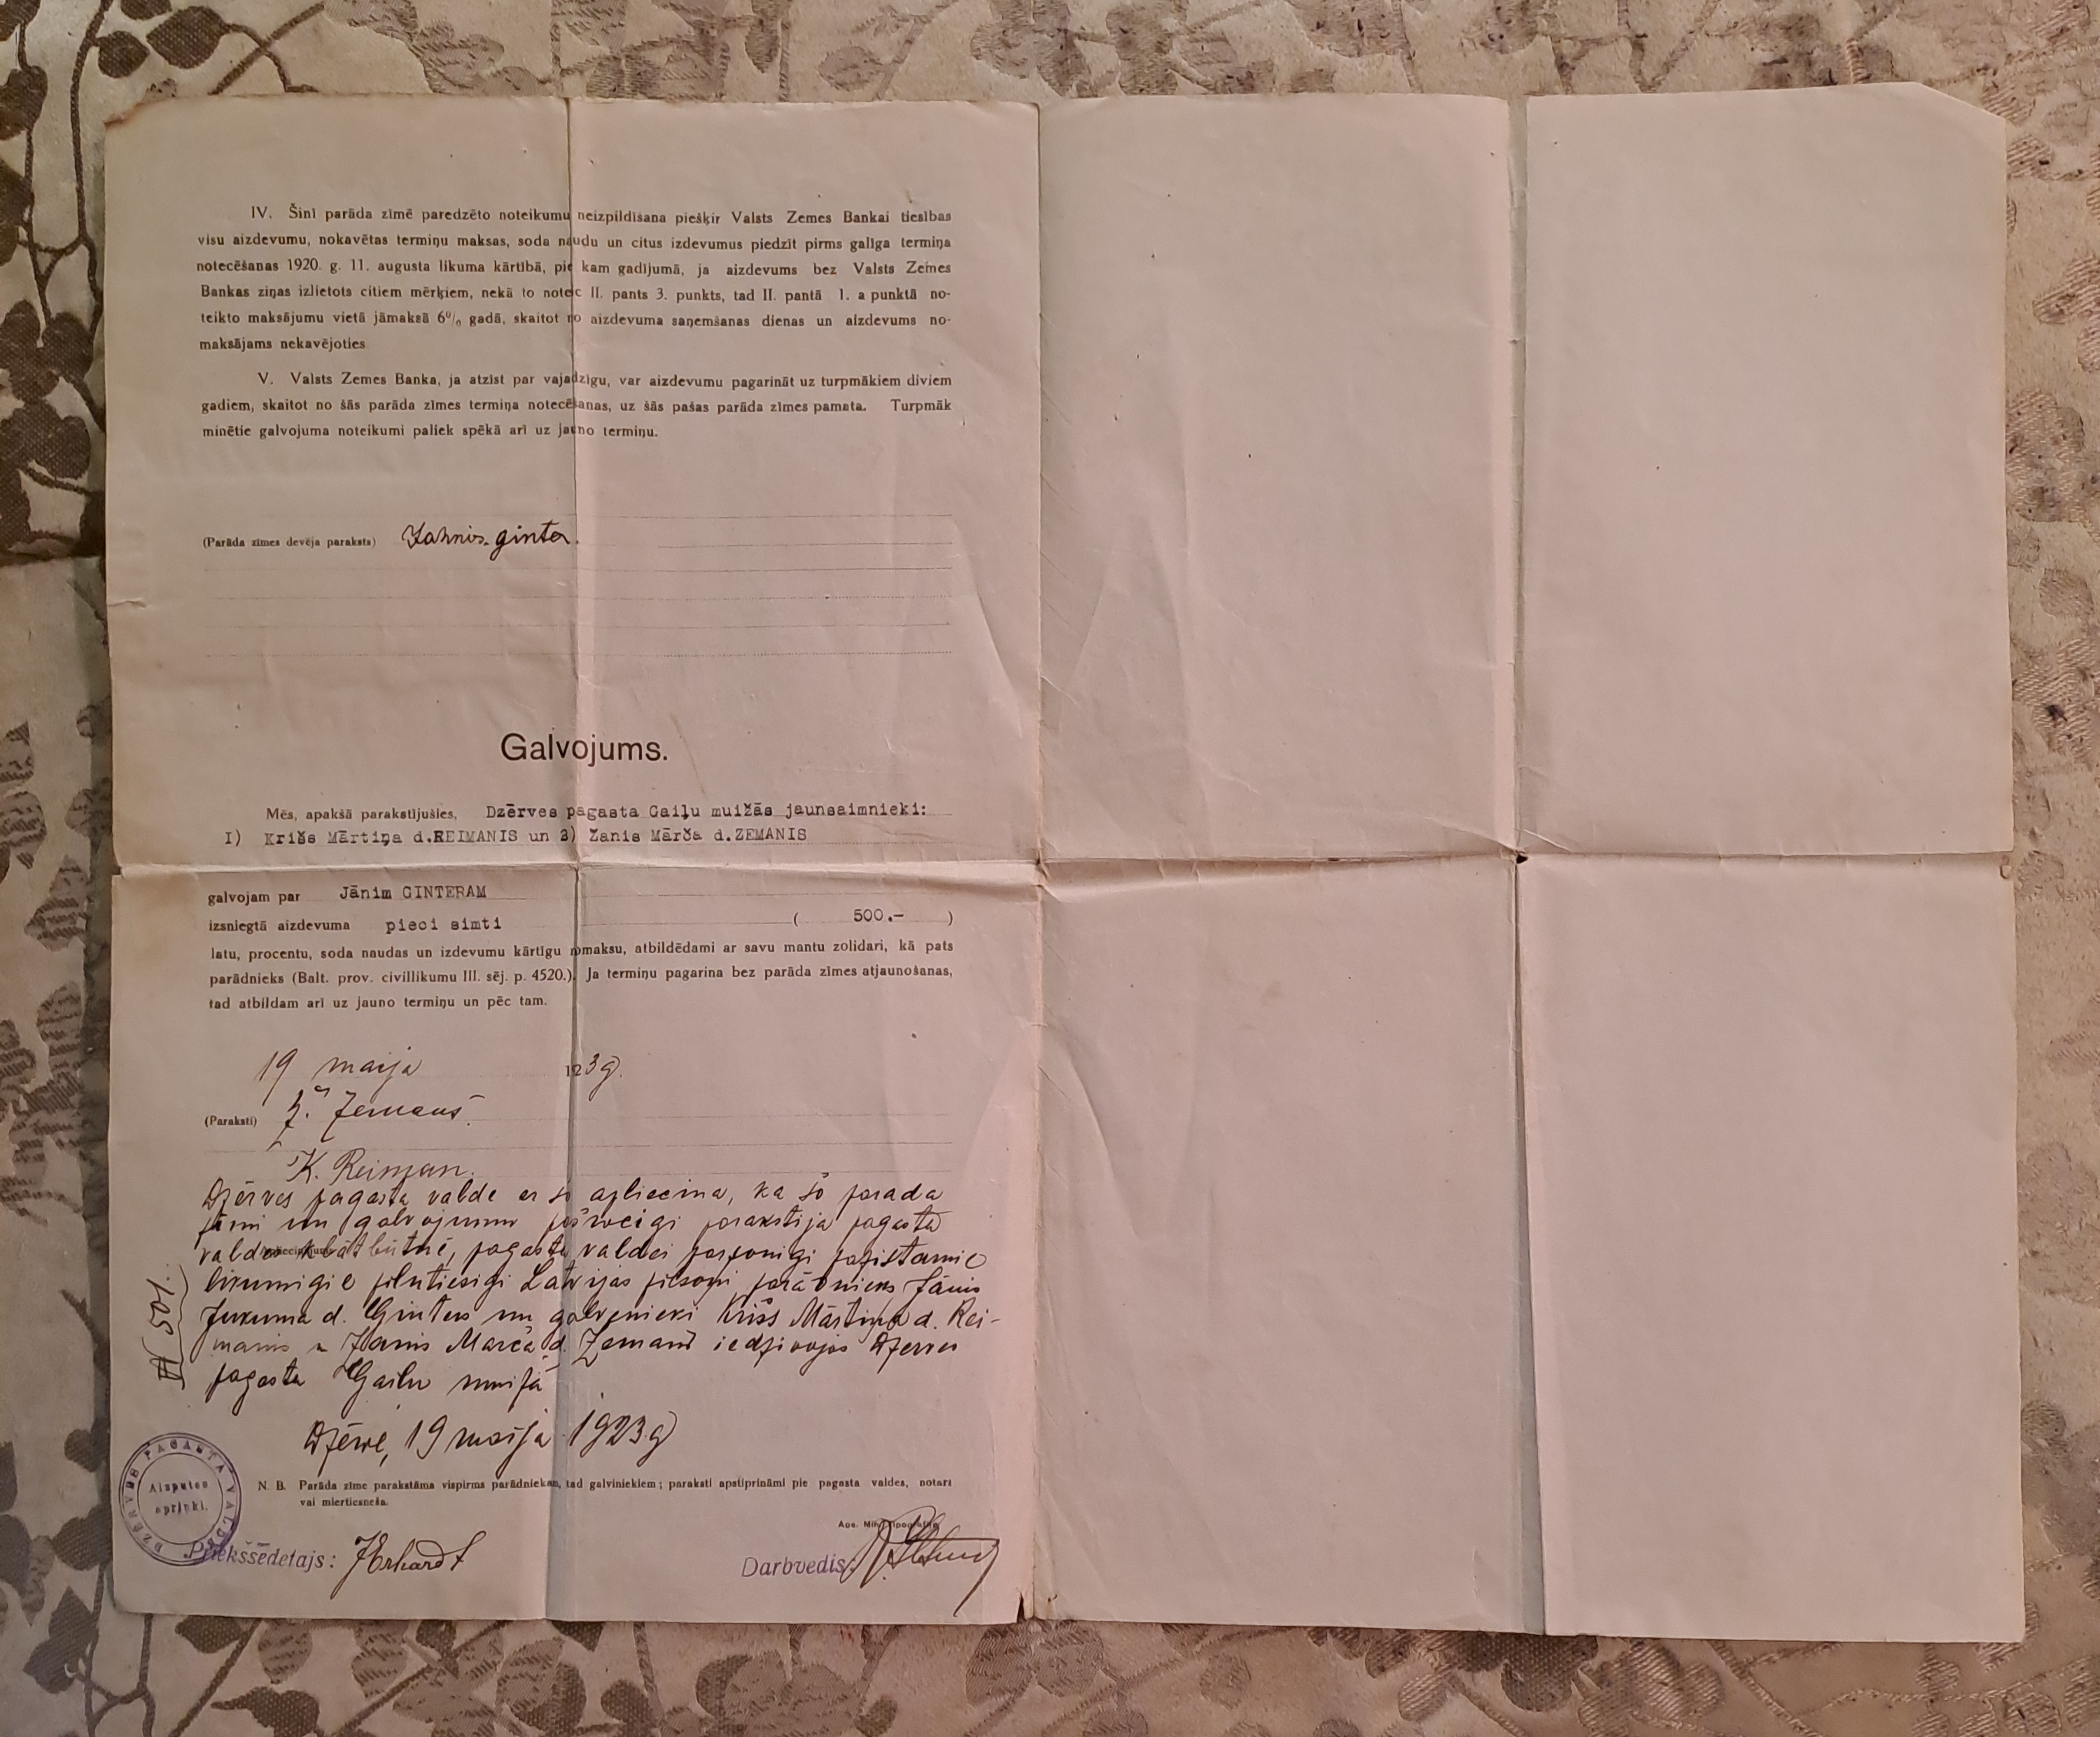 IV. Šinī parāda zīmē paredzēto noteikumu neizpildīšana piešķir Valsts Zemes Bankai tiesības
visu aizdevumu, nokavētas termiņu maksas, soda naudu un citus izdevumus piedzīt pirms galīga termiņa
notecēšanas 1920. g. 11. augusta likuma kārtībā, pie kam gadījumā, ja aizdevums bez Valsts Zemes
Bankas ziņas izlietots citiem mērķiem, nekā to noteic II. pants 3. punkts, tad II. pantā 1. a punktā no-
teikto maksājumu vietā jāmaksā 6% gadā, skaitot no aizdevuma saņemšanas dienas un aizdevums no-
maksājams nekavējoties
V. Valsts Zemes Banka, ja atzīst par vajadzīgu, var aizdevumu pagarināt uz turpmākiem diviem
gadiem, skaitot no šās parāda zīmes termiņa notecēšanas, uz šās pašas parāda zīmes pamata. Turpmāk
minētie galvojuma noteikumi paliek spēkā arī uz jauno termiņu.
(Parāda zīmes devēja paraksts) Jahnis. ginter.
Galvojums.
Mēs, apakšā parakstījušies, Dzērves pagasta Gaiļu muižās jaunsaimnieki:
I) Krišs Mārtiņa d.REIMANIS un 2) Žanis Mārča d.ZEMANIS
galvojam par Jānim GINTERAM
izsniegtā aizdevuma pieci simti ( 500.- )
latu, procentu, soda naudas un izdevumu kārtīgu nomaksu, atbildēdami ar savu mantu zolidari, kā pats
parādnieks (Balt. prov. civillikumu III. sēj. p. 4520.). Ja termiņu pagarina bez parāda zīmes atjaunošanas,
tad atbildam arī uz jauno termiņu un pēc tam.
19 maija 1923 g.
(Paraksti) Ž. Zemans.
K. Reiman.
Dzērves pagasta valde ar šo apliecina, ka šo parada
zīmi un galvojumu pašrocigi parakstija pagasta
valdes klātbūtnē, pagasta valdei personigi pazistamie
likumigie pilntiesigi Latvijas pilsoņi parādnieks Jānis
Jukuma d. Ginters un galvenieki Krišs Mārtiņa d. Rei-
manis u Žanis Marča d. Zemans iedzivojos Dzerves
pagasta Gaiļu muižā
Dzērvē, 19 maija 1923 g
N. B. Parāda zīme parakstāma vispirms parādniekam, tad galviniekiem; paraksti apstiprināmi pie pagasta valdes, notara
vai miertiesneša.
DZĒRVES PAGASTA VALDE
Aizputes
apriņķi.
Priekšsēdetajs: JErhardt
Darbvedis: